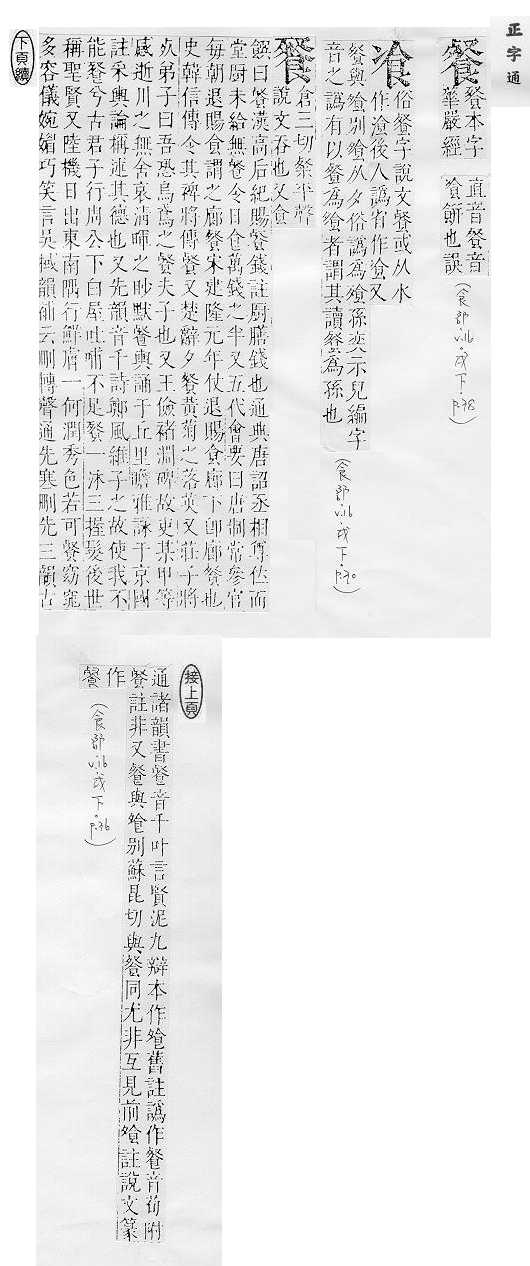 正字通
餐 餐本字 直音餐音
華嚴經 飡餅也誤
(食部 v.16.戌下.p.78)
飡 俗餐字說文餐或从水
作湌後人譌省作飡又
餐與飧別飧从夕俗譌為飱孫奕示兒編字
音之譌有以餐為飧者謂其讀餐為孫也
(食部 v.16.戌下.p.70)
餐 倉三切粲平聲
說文吞也又食
饌曰餐漢高后紀賜餐錢註厨膳錢也通典唐詔丞相尊位而
堂厨未給無餐令日食萬錢之半又五代會要曰唐制常參官
每朝退賜食謂之廊餐宋建隆元年仗退賜食廊下卽廊餐也
史韓信傳令其裨將傳餐又楚辭夕餐黃菊之落英又莊子將
炊弟子曰吾恐烏鳶之餐夫子也又王儉褚淵碑故吏某甲等
感逝川之無舍哀清暉之眇默餐輿誦于丘里瞻雅詠于京國
註采輿論稱述其德也又先韻音千詩鄭風維子之故使我不
能餐兮古君子行周公下白屋吐哺不足餐一沐三握髮後世
稱聖賢又陸機日出東南隅行鮮膚一何潤秀色若可餐窈窕
多容儀婉媚巧笑言吳棫韻補云刪博聲通先寒刪先三韻古
下頁續
接上頁
通諸韻書餐音千叶言賢泥九辯本作飧舊註譌作餐音荀附
餐註非又餐與飧別蘇昆切與餐同尤非互見前飧註說文篆
作餐
(食部 v.16.戌下.p.76)